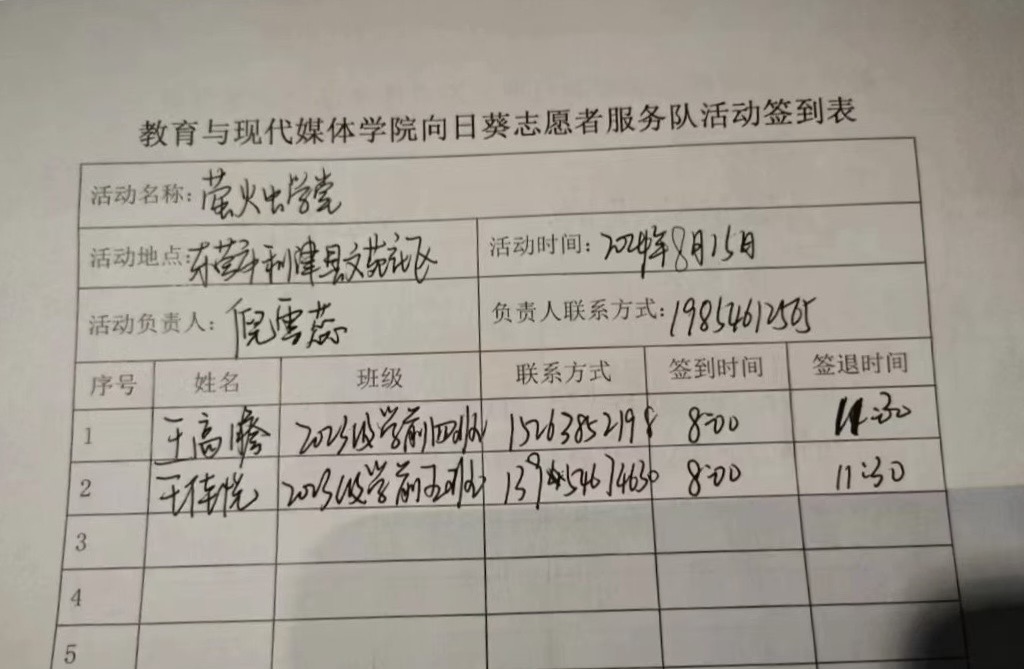 教育与现代媒体学院向日葵志愿者服务队活动签到表
活动名称: 萤火虫学堂
活动地点: 东营市利津县文苑社区 活动时间: 2024年8月15日
活动负责人: 倪雲蕊 负责人联系方式: 19854612565
序号 姓名 班级 联系方式 签到时间 签退时间
1 王高 2023级学前四班 15263852198 8:00 11:30
2 王佳悦 2023级学前五班 8:00 11:30
3
4
5